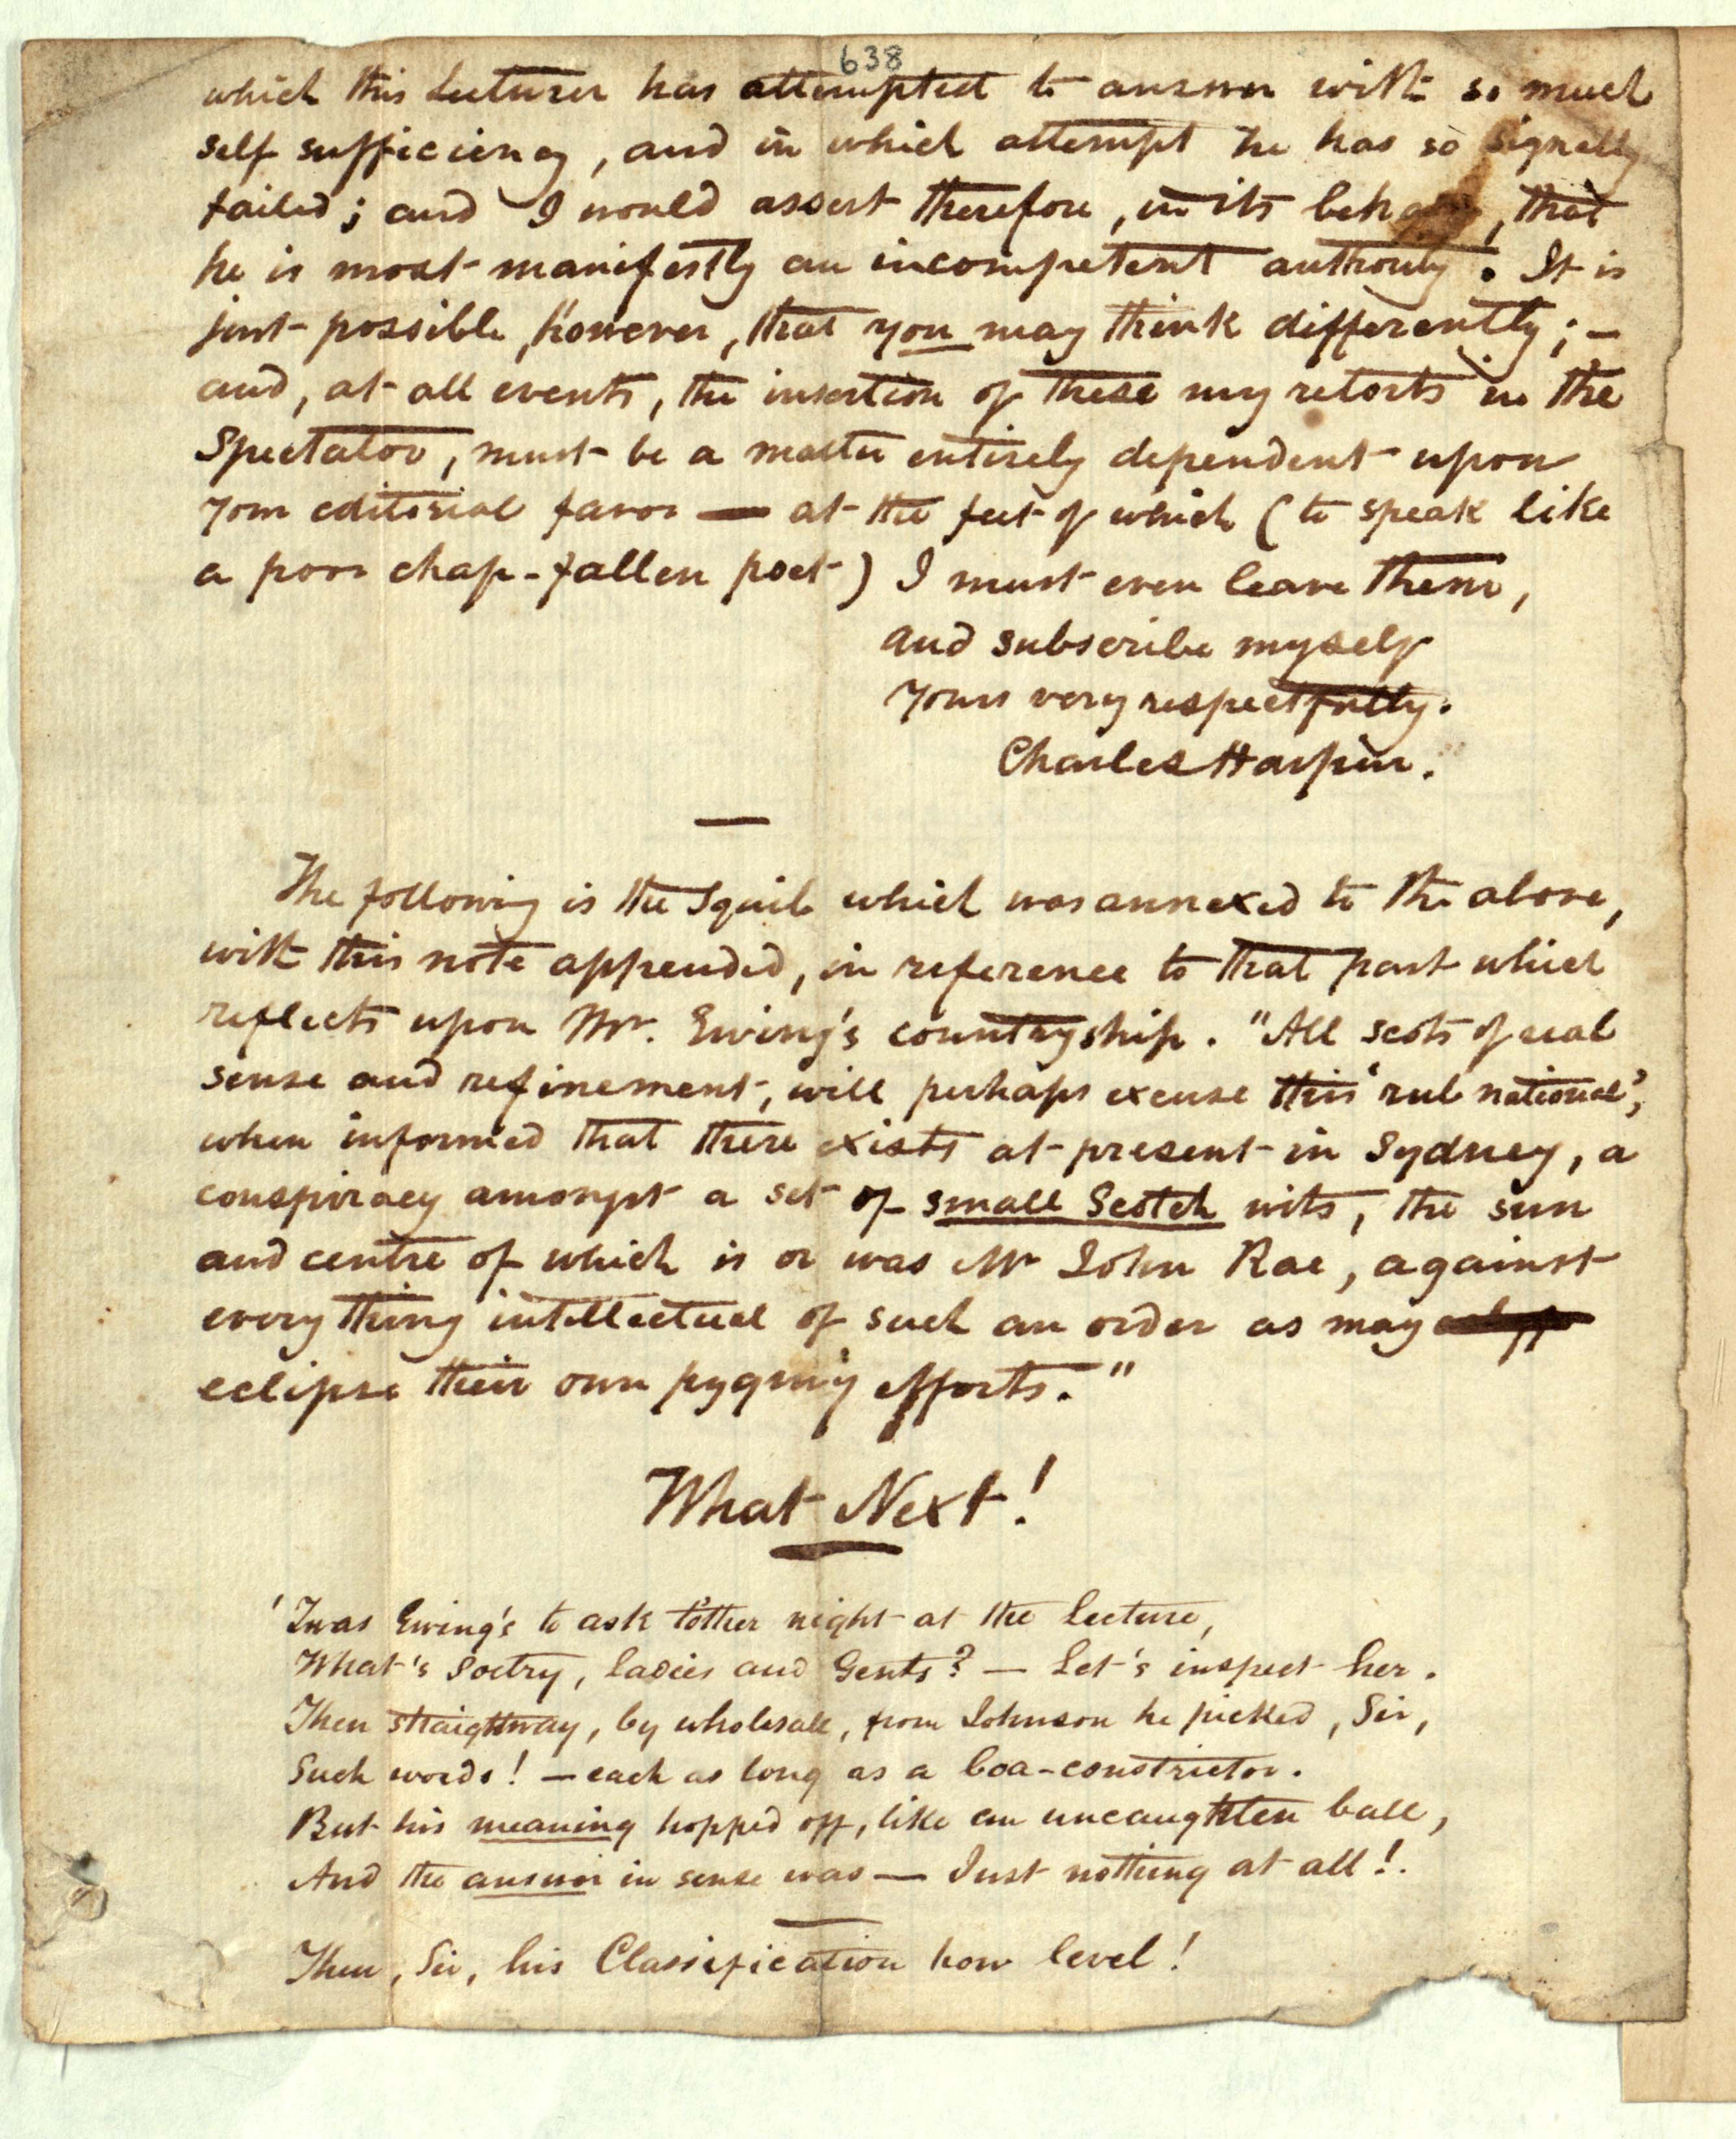 638
which this Lecturer has attempted to answer with so much
self sufficiency, and in which attempt he has so signally
failed; and I would assert therefore, in its behalf, that
he is most manifestly an incompetent authority. It is
just possible, however, that you may think differently; —
and, at all events, the insertion of these my retorts in the
Spectator, must be a matter entirely dependent upon
your editorial favor — at the feet of which (to speak like
a poor chap-fallen poet) I must even leave them,
and subscribe myself
Yours very respectfully.
Charles Harpur.
The following is the Squib which was annexed to the above,
with this note appended, in reference to that part which
reflects upon Mr. Ewing's countryship. "All scots of real
sense and refinement, will perhaps excuse this 'rub national',
when informed that there exists at present in Sydney, a
conspiracy amongst a set of small Scotch wits, the sun
and centre of which is or was Mr John Rae, against
every thing intellectual of such an order as may
eclipse their own pygmy efforts."
What Next!
'Twas Ewing's to ask t'other night at the Lecture,
What's Poetry, Ladies and Gents? — Let's inspect her.
Then straightway, by wholesale, from Johnson he picked, Sir,
Such words! — each as long as a boa-constrictor.
But his meaning hopped off, like an uncaughten ball,
And the answer in sense was — Just nothing at all!.
Then, Sir, his Classification how level!